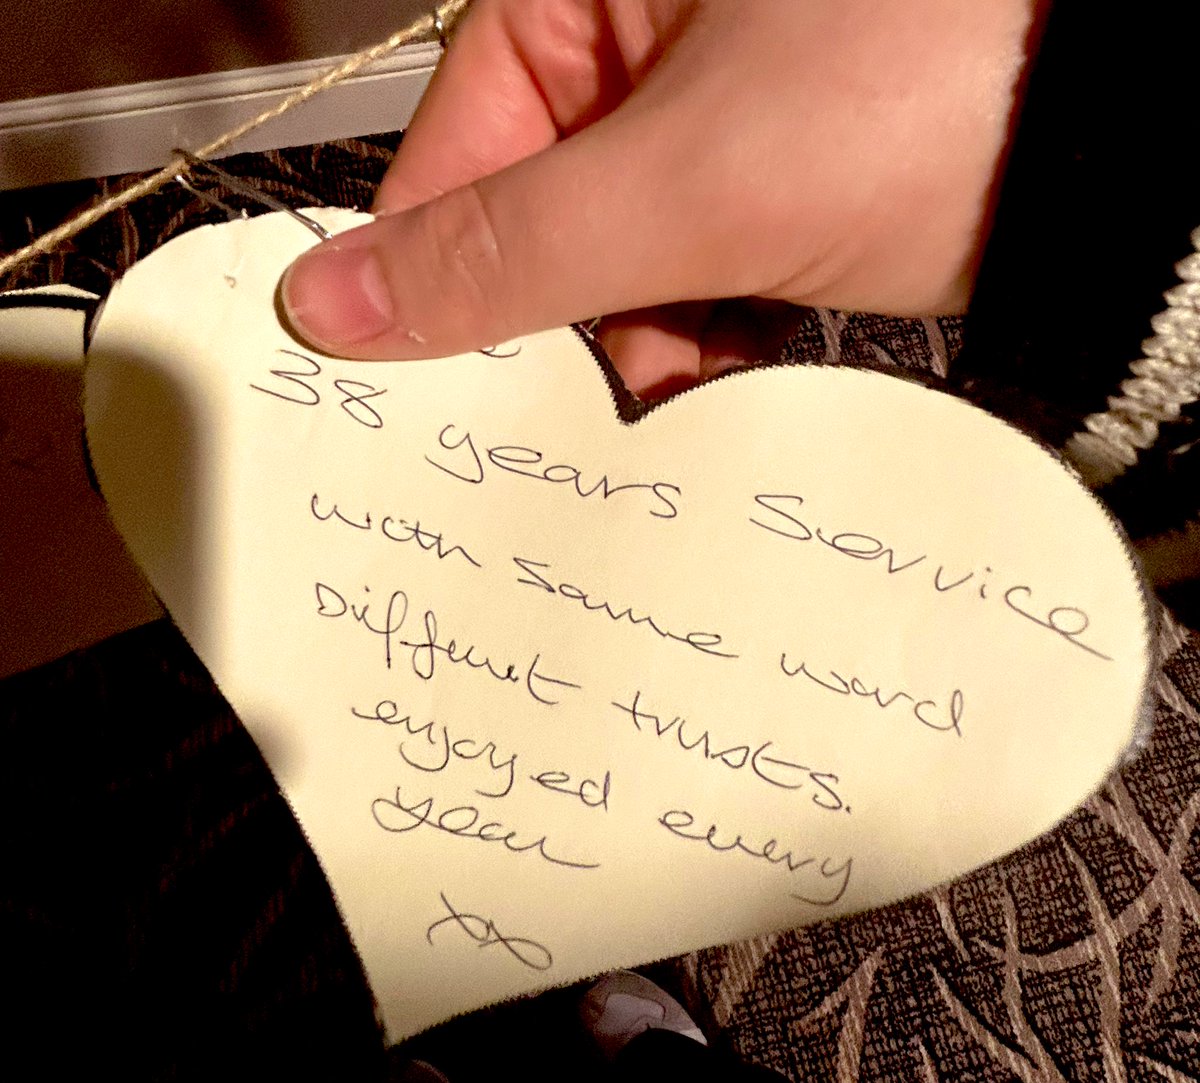 38 years Service
with same ward
Different trusts.
enjoyed every
year
xx